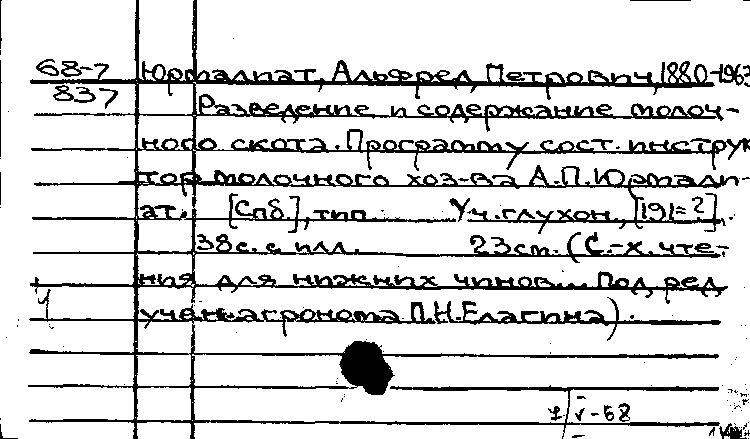 68-7 Юрмалиат, Альфред Петрович, 1880-1963
837 Разведение и содержание молоч-
ного скота. Программу сост. инструк
тор молочного хоз-ва А.П.Юрмали-
ат. [Спб.], тип. Уч. глухон., [191=?].
38с. с илл. 23см. (С.-х. чте-
ния для нижних чинов... Под ред.
учен. агронома П.Н.Елагина).
Ч
V-68